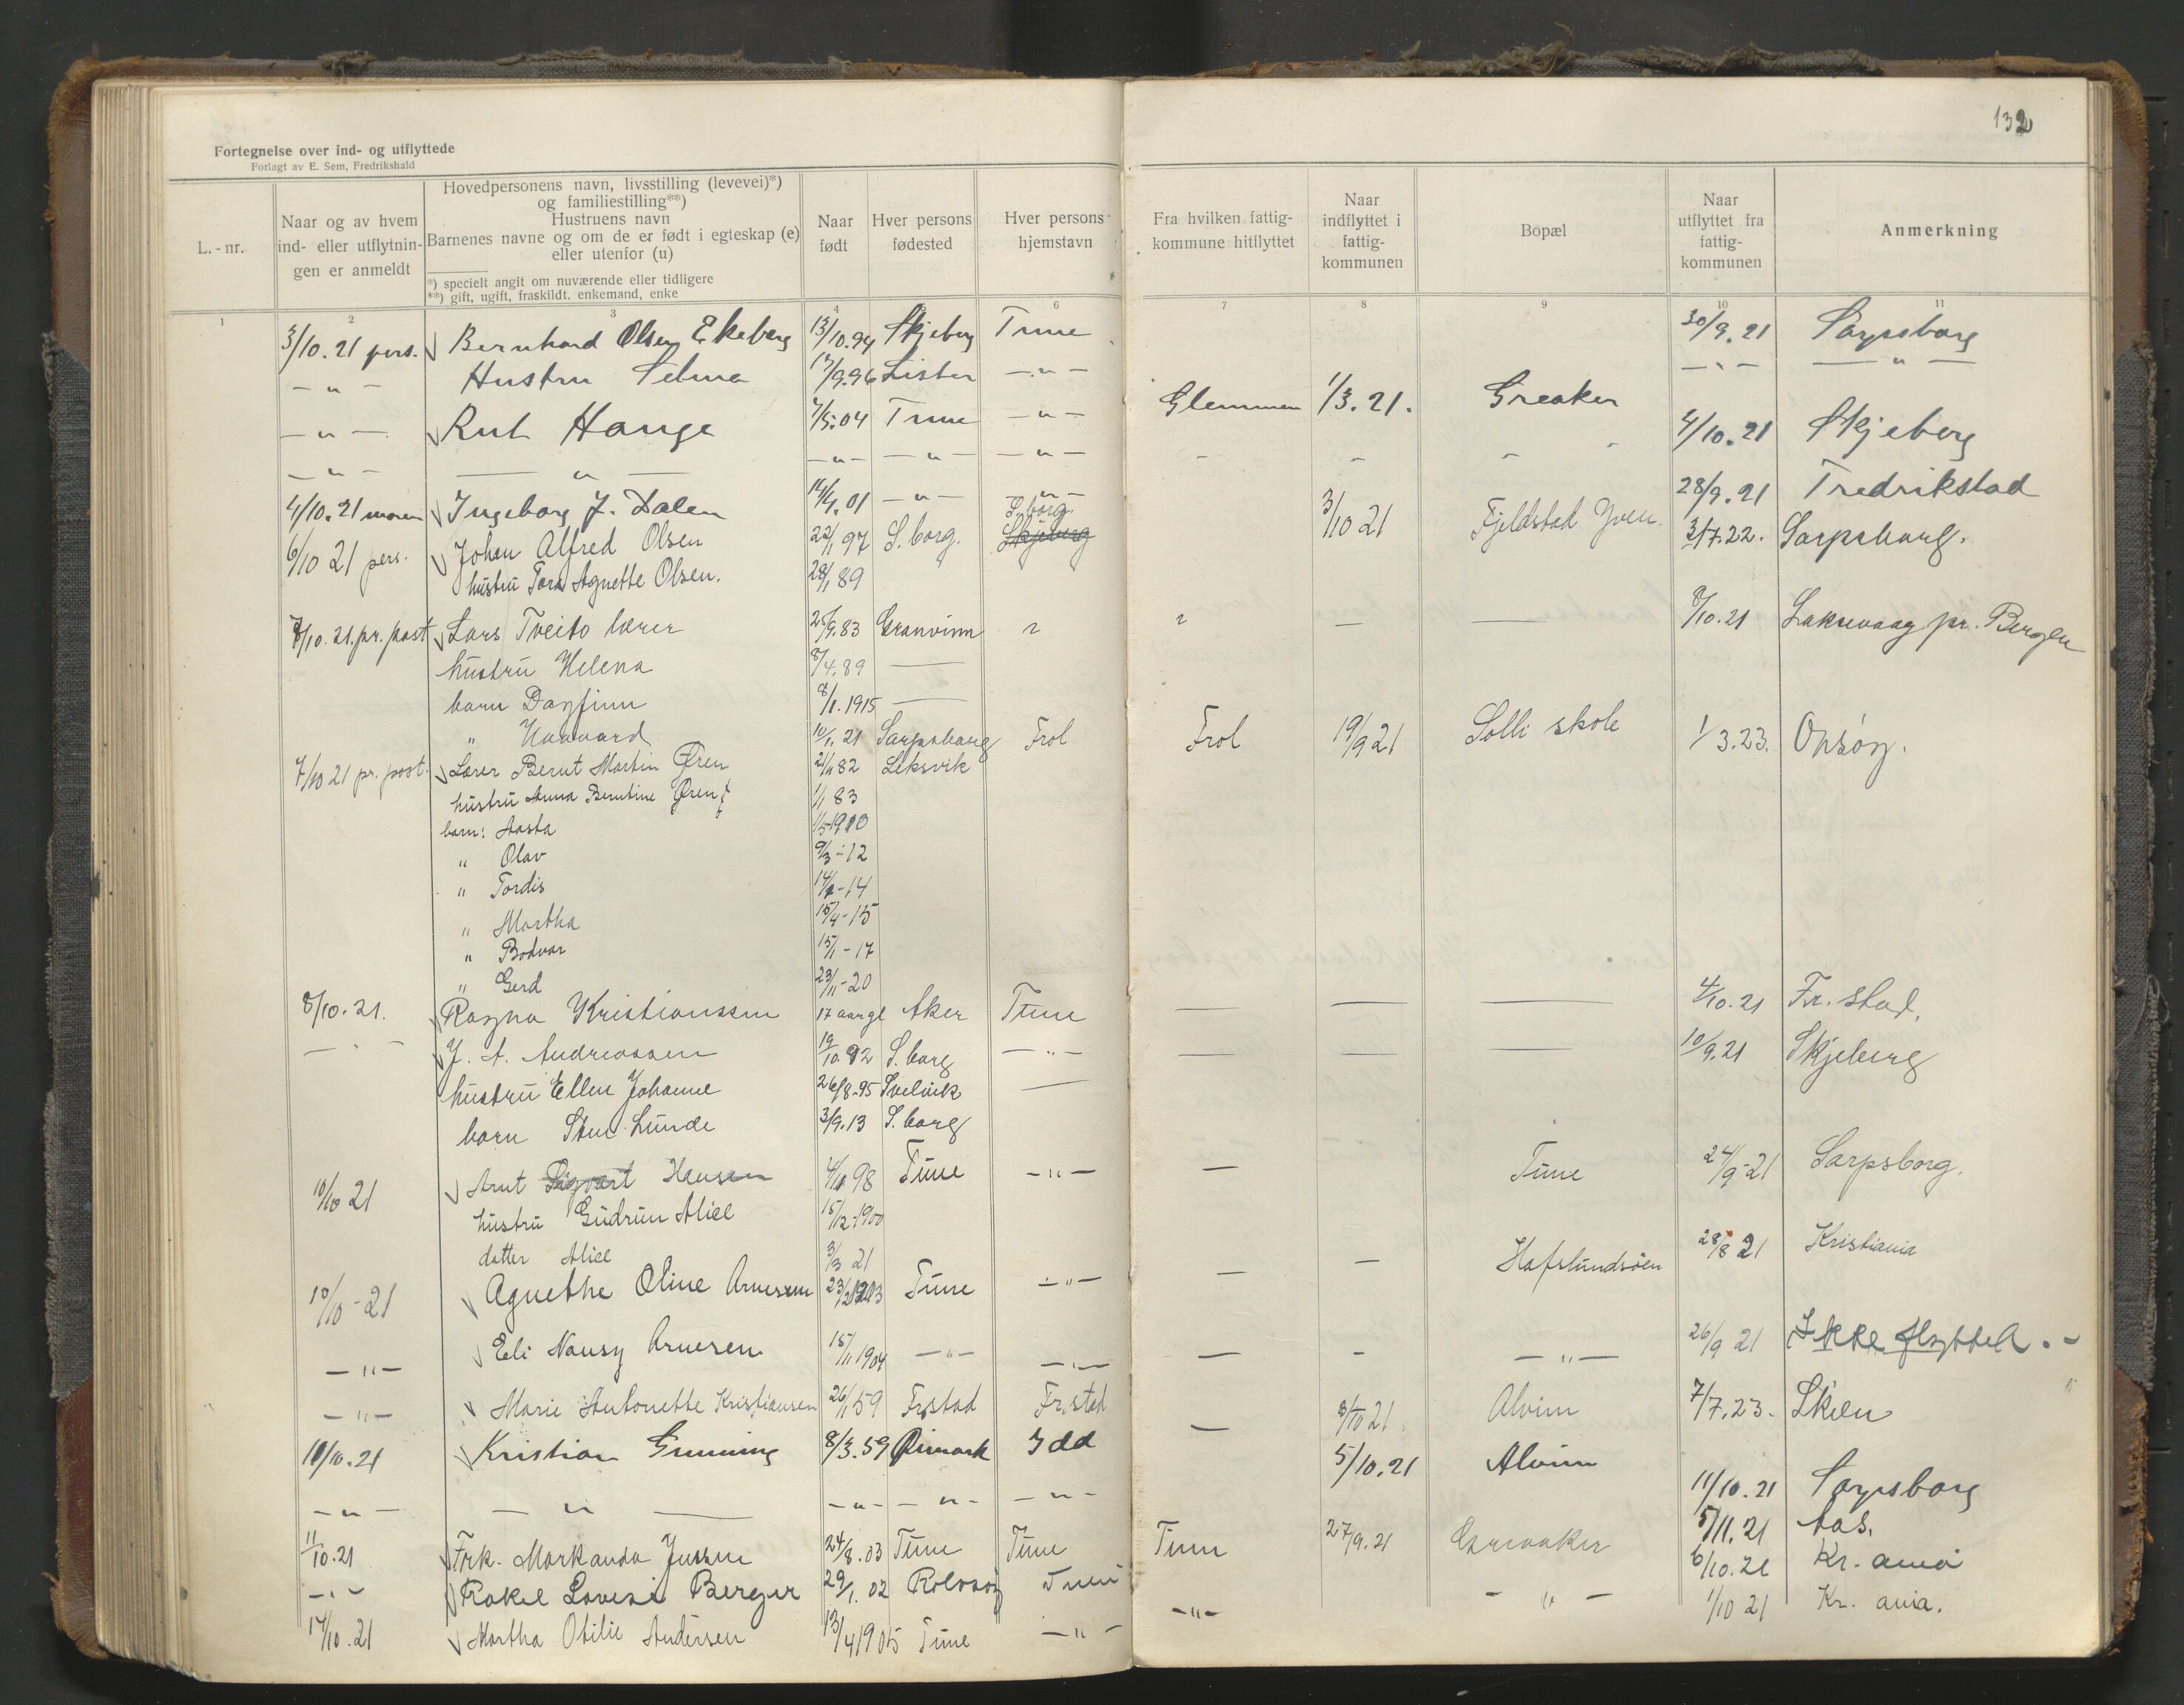 132
Fortegnelse over ind- og utflyttede
Forlagt av E. Sem, Fredrikshald
L.-nr.
Naar og av hvem ind- eller utflytningen er anmeldt
Hovedpersonens navn, livsstilling (levevei)*) og familiestilling**)
Hustruens navn
Barnenes navne og om de er født i egteskap (e) eller utenfor (u)
*) specielt angit om nuværende eller tidligere
**) gift, ugift, fraskildt. enkemand, enke
Naar født
Hver persons fødested
Hver persons hjemstavn
Fra hvilken fattigkommune hitflyttet
Naar indflyttet i fattigkommunen
Bopæl
Naar utflyttet fra fattigkommunen
Anmerkning
1 2 3 4 6 7 8 9 10 11
3/10.21 pers. Bernhard Olsen Ekeberg 13/10.94 Skjeberg Tune 30/9.21 Sarpsborg
— " — Hustru Selma 17/9.96 Lister — " — — " — — " —
— " — Rut Hauge 7/5.04 Tune — " — Glemmen 1/3.21. Greaker
— " — — " — — " — — " — — " — 4/10.21 Skjeberg
4/10.21 moren Ingeborg J. Dalen 14/4.01 — " — — " — 28/9.21 Fredrikstad
6/10 21 pers. Johan Alfred Olsen 22/1 97 S.borg. S.borg. Skjeberg 3/10 21 Fjeldstad Yven. 3/7.22. Sarpsborg.
hustru Tora Agnette Olsen. 28/1 89
7/10.21. pr. post Lars Tveito lærer 25/9.83 Granvinn ? ? — — 8/10.21 Laksevaag pr. Bergen
hustru Helena 8/4.89 —
barn Dagfinn 8/1.1915 —
" Haavard 10/1.21 Sarpsborg
7/10 21 pr. post. Lærer Bernt Martin Øren 21/11 82 Leksvik Frol Frol 19/9 21 Solli skole 1/3.23. Onsøy.
hustru Anna Berntine Øren 1/1 83
barn: Aasta 1/5-1910
" Olav 9/3-12
" Tordis 14/2-14
" Martha 15/4-15
" Bodvar 15/1-17
" Gerd 23/11-20
8/10.21. Ragna Kristianssen 17 aar gl Aker Tune — — — 4/10.21 Fr.stad.
— " — J. A. Andreassen 19/10.92 S.borg — " — — — — 10/9.21 Skjeberg
hustru Ellen Johanne 26/8-95 Svelvik —
barn Sten Lunde 3/9.13 S.borg
10/10 21 Arnt Sigvart Hansen 4/10 98 Tune — " — — Tune 24/9-21 Sarpsborg.
hustru Gudrun Alice 15/12-1900
datter Alice 3/3 21
10/10-21 Agnethe Oline Arnesen Tune — " — — — Hafslundsøen 28/8 21 Kristiania
— " — Eli Nansy Arnesen 15/11 1904 — " — — " — — - — " — 26/9 21 Ikke flyttet. -
— " — Marie Antonette Kristiansen 26/1 59 Fr.stad Fr.stad — 3/10 21 Alvim 7/7.23. Skien
11/10.21 Kristian Grunning 8/3.59 Ømark Idd 5/10.21 Alvim
— " — — " — — " — — " — — " — 11/10.21 Sarpsborg
11/10.21 Frk. Markanda Jensen 24/8.03 Tune Tune Tune 27/9.21 Greaaker 5/11.21 Aas.
— " — Rakel Lovise Berger 29/1.02 Rolvsøy Tune — " — 6/10.21 Kr.ania
14/10.21 Martha Otilie Andersen 13/4 1905 Tune — " — — " — 1/10 21 Kr. ania.